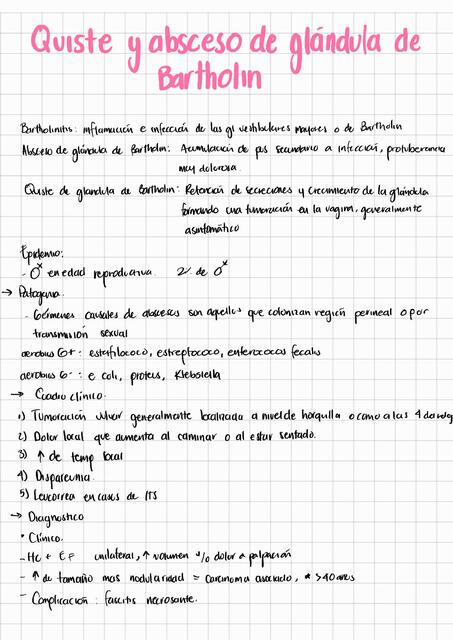 Quiste y absceso de glándula de
Bartholin
Bartholinitis: inflamación e infección de las gl vestibulares mayores o de Bartholin
Absceso de glándula de Bartholin: Acumulación de pus secundario a infección, protuberancia
muy dolorosa.
Quiste de glandula de Bartholin: Retención de secreciones y crecimiento de la glándula
formando una tumoración en la vagina, generalmente
asintomático
Epidemio:
- en edad reproductiva. 2% de
→ Patogenia.
- Gérmenes causales de abscesos son aquellos que colonizan región perineal o por
transmisión sexual
aerobios G+: estafilococo, estreptococo, enterococos fecalis
aerobios G- : e coli, proteus, Klebsiella
→ Cuadro clínico.
1) Tumoración vulvar generalmente localizada a nivel de horquilla o como a las 4 de
2) Dolor local que aumenta al caminar o al estar sentado.
3) ↑ de temp local
4) Dispareunia.
5) Leucorrea en casos de ITS
→ Diagnostico
• Clínico.
- HC + EF unilateral, ↑ volumen y/o dolor a palpación
- ↑ de tamaño mas nodularidad = carcinoma asociado, * >40 años
- Complicación: fascitis necrosante.